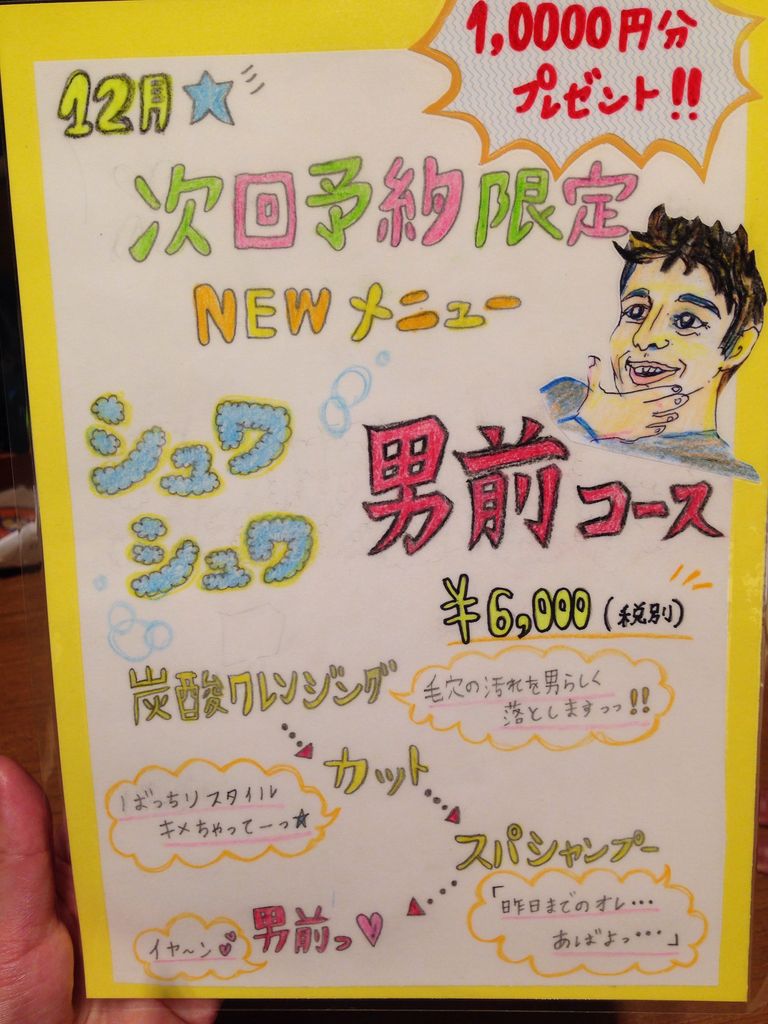 1,0000円分
プレゼント!!
12月
次回予約限定
NEWメニュー
シュワ
シュワ
男前コース
¥6,000(税別)
炭酸クレンジング
毛穴の汚れを男らしく
落としますっっ!!
カット
ばっちりスタイル
キメちゃってーっ
スパシャンプー
「昨日までのオレ…
あばよっ…」
男前っ
イヤ〜ン